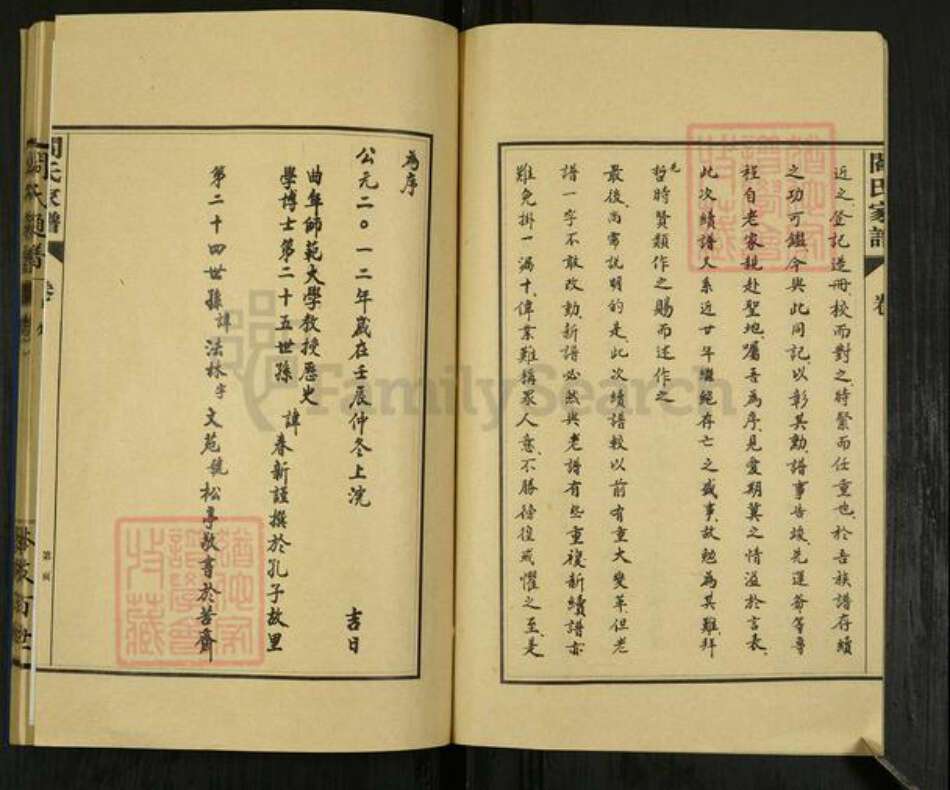 閻氏家譜
卷
近之登記造冊校而對之時緊而任重也於吾族譜存續
之功可鑑今與此同記以彰其勳譜事告竣先運爺等專
程自老家親赴聖地囑吾為序見愛期冀之情溢於言表
此次續譜又系近廿年繼絕存亡之盛事故勉為其難拜
先
哲時賢類作之賜而述作之
最後尚需說明的是此次續譜較以前有重大變革但老
譜一字不敢改動新譜必然與老譜有些重複新續譜亦
難免掛一漏十偉業難稱眾人意不勝徬徨戒懼之至是
為序
公元二〇一二年歲在壬辰仲冬上浣 吉日
曲阜師範大學教授歷史
學博士第二十五世孫 諱春新謹撰於孔子故里
第二十四世孫諱法林字文苑號松亭敬書於苦齋
閻氏家譜
卷
第 頁
FamilySearch